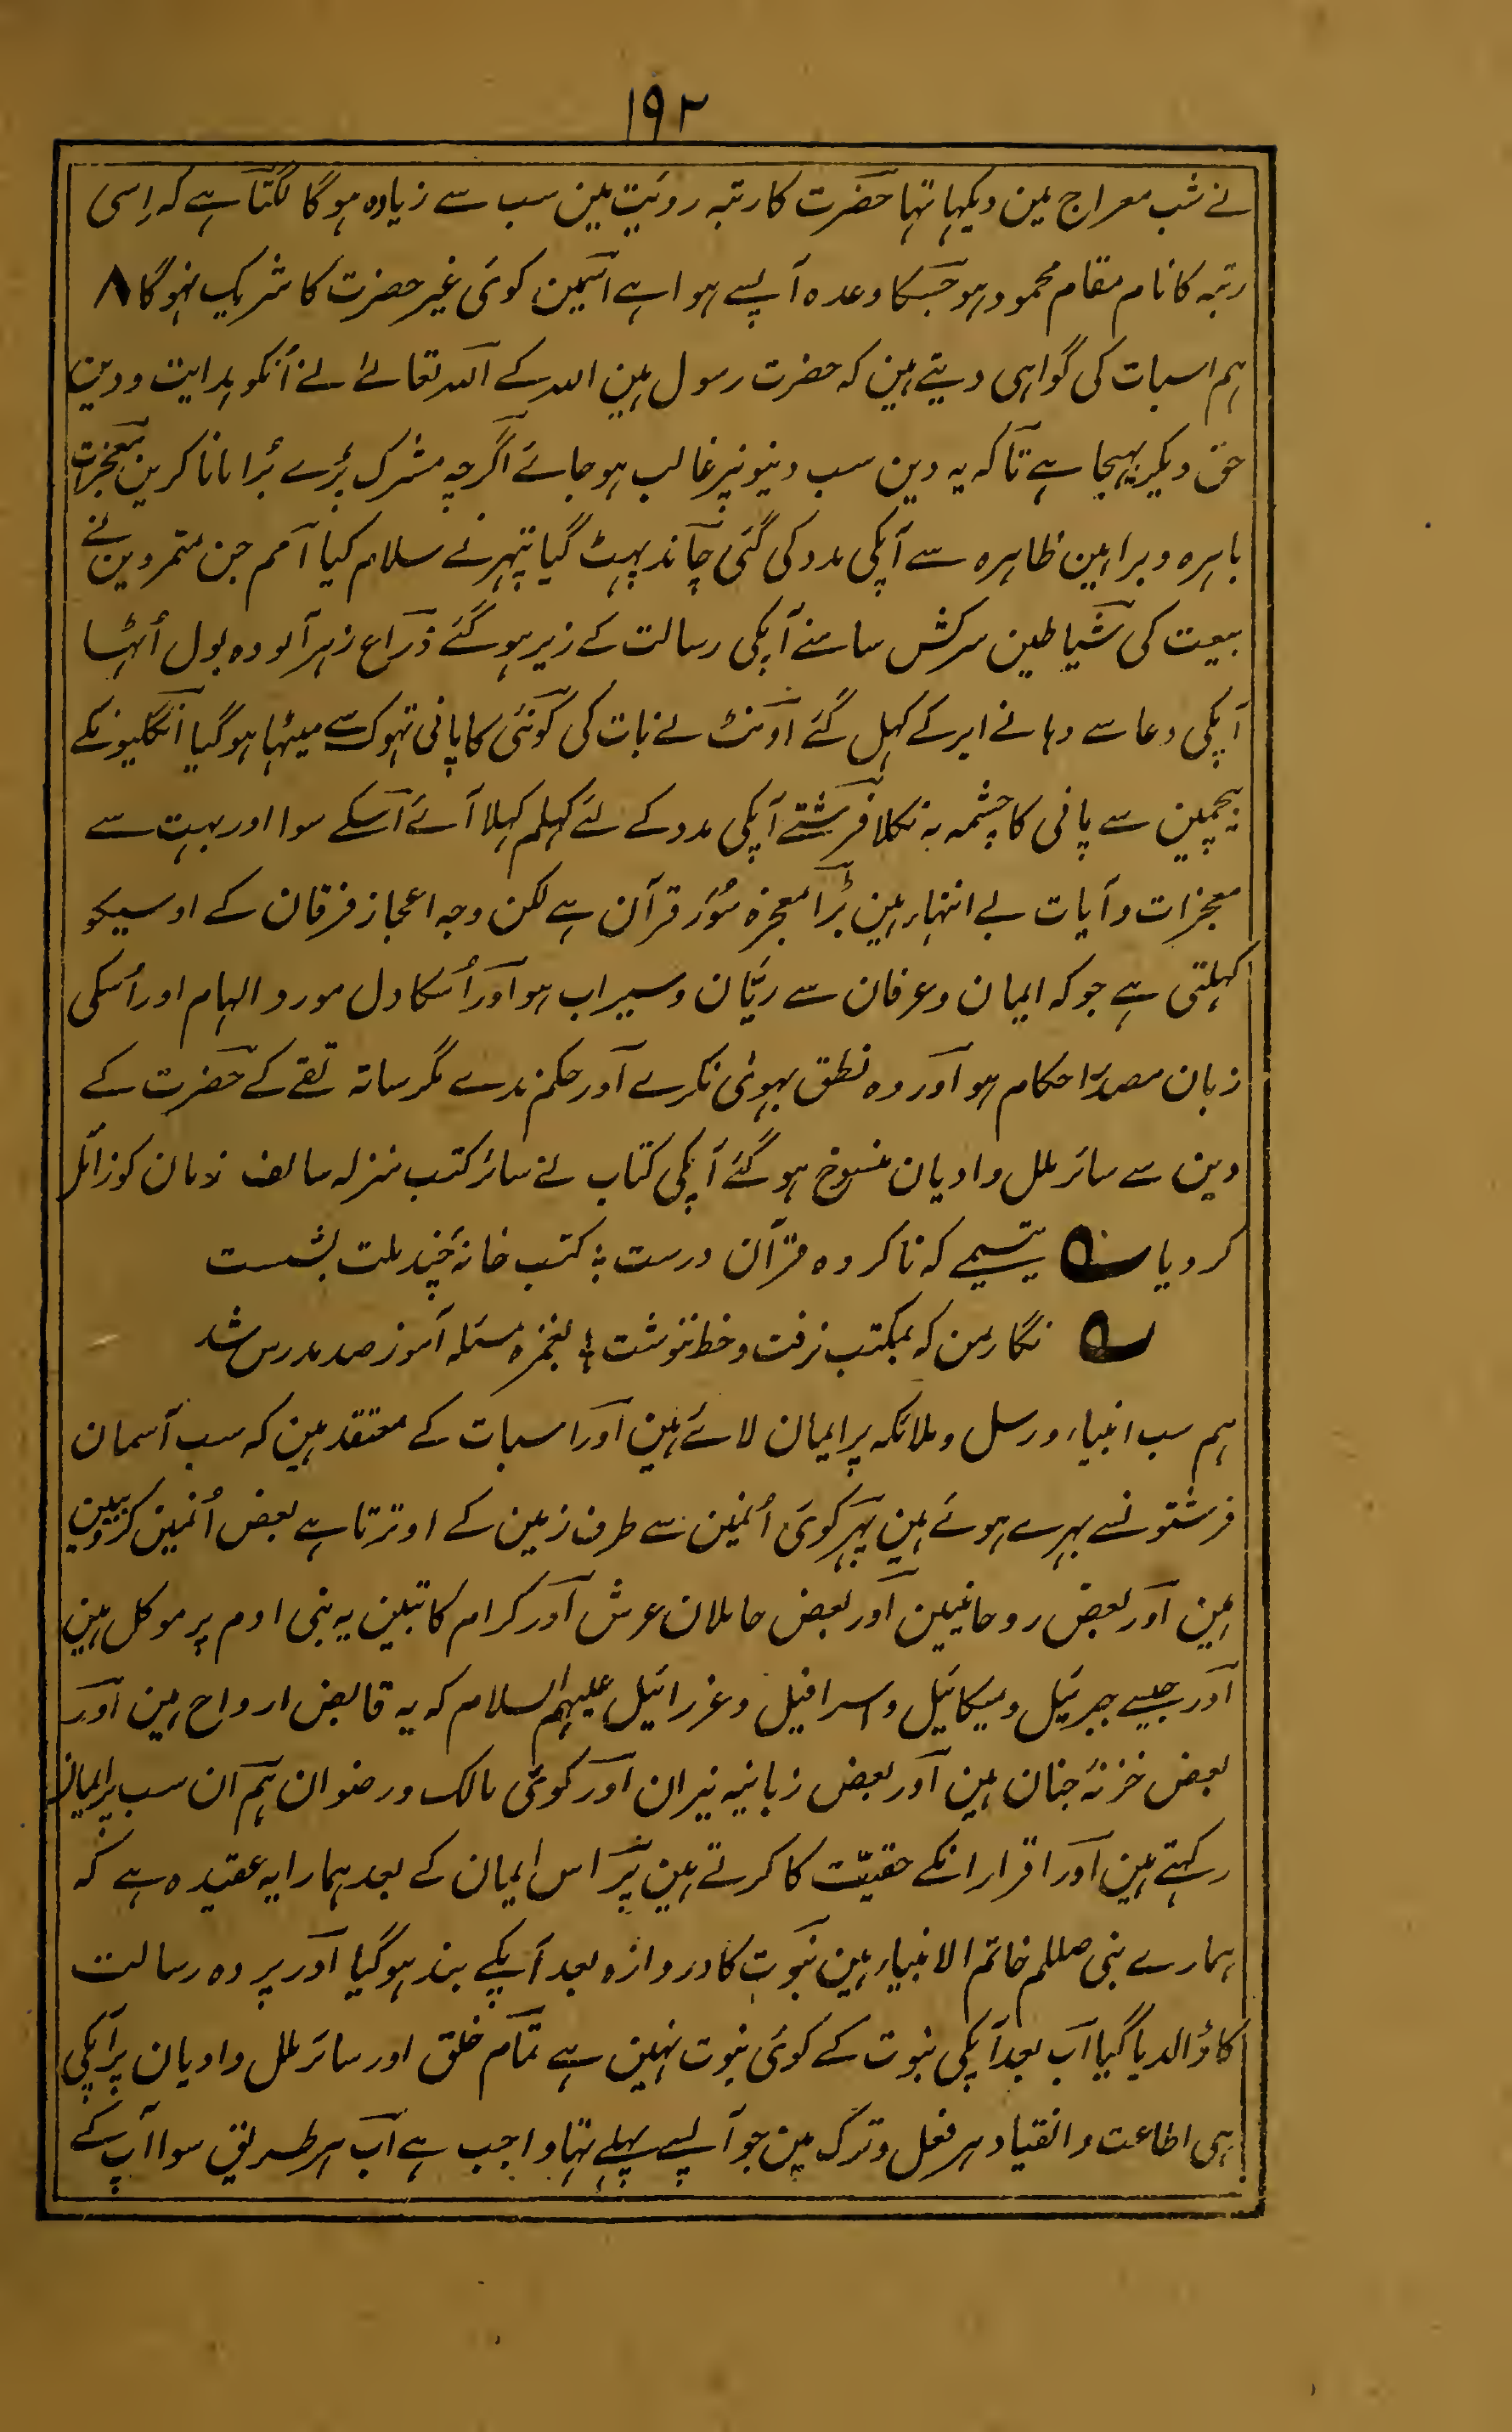 ۱۹۲
نے شب معراج مین دیکہا تہا حضرت کا رتبہ رویت مین سب سے زیادہ ہوگا لگتا ہے کہ اِسی
رتبہ کا نام مقام محمود ہو جسکا وعدہ آپسے ہوا ہے اسمین کوئی غیر حضرت کا شریک نہوگا ۸
ہم اسبات کی گواہی دیتے ہین کہ حضرت رسول ہین اللہ کے اللہ تعالےٰ نے اُنکو ہدایت و دین
حق دیکر بہیجا ہے تاکہ یہ دین سب دینونپر غالب ہو جائے اگرچہ مشرک بُرے بُرا مانا کرین معجزات
باہرہ و براہین ظاہرہ سے آپکی مدد کی گئی چاند پہٹ گیا پتہر نے سلام کیا امم جن متمردین نے
بیعت کی شیاطین سرکش سامنے آپکی رسالت کے زیر ہو گئے ذراع زہر آلودہ بول اُٹہا
آپکی دعا سے دہانے ابر کے کہل گئے اونٹ نے بات کی کوئنی کا پانی تہوک سے میٹہا ہو گیا انگلیونکے
بیچمین سے پانی کا چشمہ بہ نکلا فرشتے آپکی مدد کے لئے کہلم کہلا آئے اسکے سوا اور بہت سے
معجزات و آیات بے انتہا ہین بڑا معجزہ سُوَر قرآن ہے لکن وجہ اعجاز فرقان کے اوسیکو
کہلتی ہے جو کہ ایمان و عرفان سے ریّان و سیراب ہو اور اُسکا دل مورد الہام اور اُسکی
زبان مصدر احکام ہو اور وہ نطق بہوئی نکرے اور حکم ندے مگر ساتہ تقے کے حضرت کے
دین سے سائر ملل و ادیان منسوخ ہو گئے آپکی کتاب نے سائر کتب منزلہ سالف زمان کو زائل
کر دیا ؎ یتیمے کہ ناکردہ قرآن درست ؛ کتب خانہٗ چند ملت بشست
؎ نگار من کہ بمکتب نرفت و خط ننوشت ؛ بغمزہ مسئلہ آموز صد مدرس شد
ہم سب انبیاء و رسل و ملائکہ پر ایمان لائے ہین اور اسبات کے معتقد ہین کہ سب آسمان
فرشتونسے بہرے ہوئے ہین پہر کوئی اُنمین سے طرف زمین کے اوترتا ہے بعض اُنمین کروبیین
ہین اور بعض روحانیین اور بعض حاملان عرش اور کرام کاتبین یہ بنی ادم پر موکل ہین
اور جیسے جبرئیل و میکائیل و اسرافیل و عزرائیل علیہم السلام کہ یہ قابض ارواح ہین اور
بعض خزنۂ جنان ہین اور بعض زبانیہ نیران اور کوئی مالک و رضوان ہم ان سب پر ایمان
رکہتے ہین اور اقرار انکے حقیّت کا کرتے ہین پر اس ایمان کے بعد ہمارا یہ عقیدہ ہے کہ
ہمارے نبی صللم خاتم الانبیاء ہین نبوت کا دروازہ بعد آپکے بند ہو گیا اور پردہ رسالت
کا ڈالدیا گیا اب بعد آپکی نبوت کے کوئی نبوت نہین ہے تمام خلق اور سائر ملل و ادیان پر آپکی
ہی اطاعت و انقیاد ہر فعل و ترک مین جو آپسے پہلے تہا واجب ہے اب ہر طریق سوا آپ کے